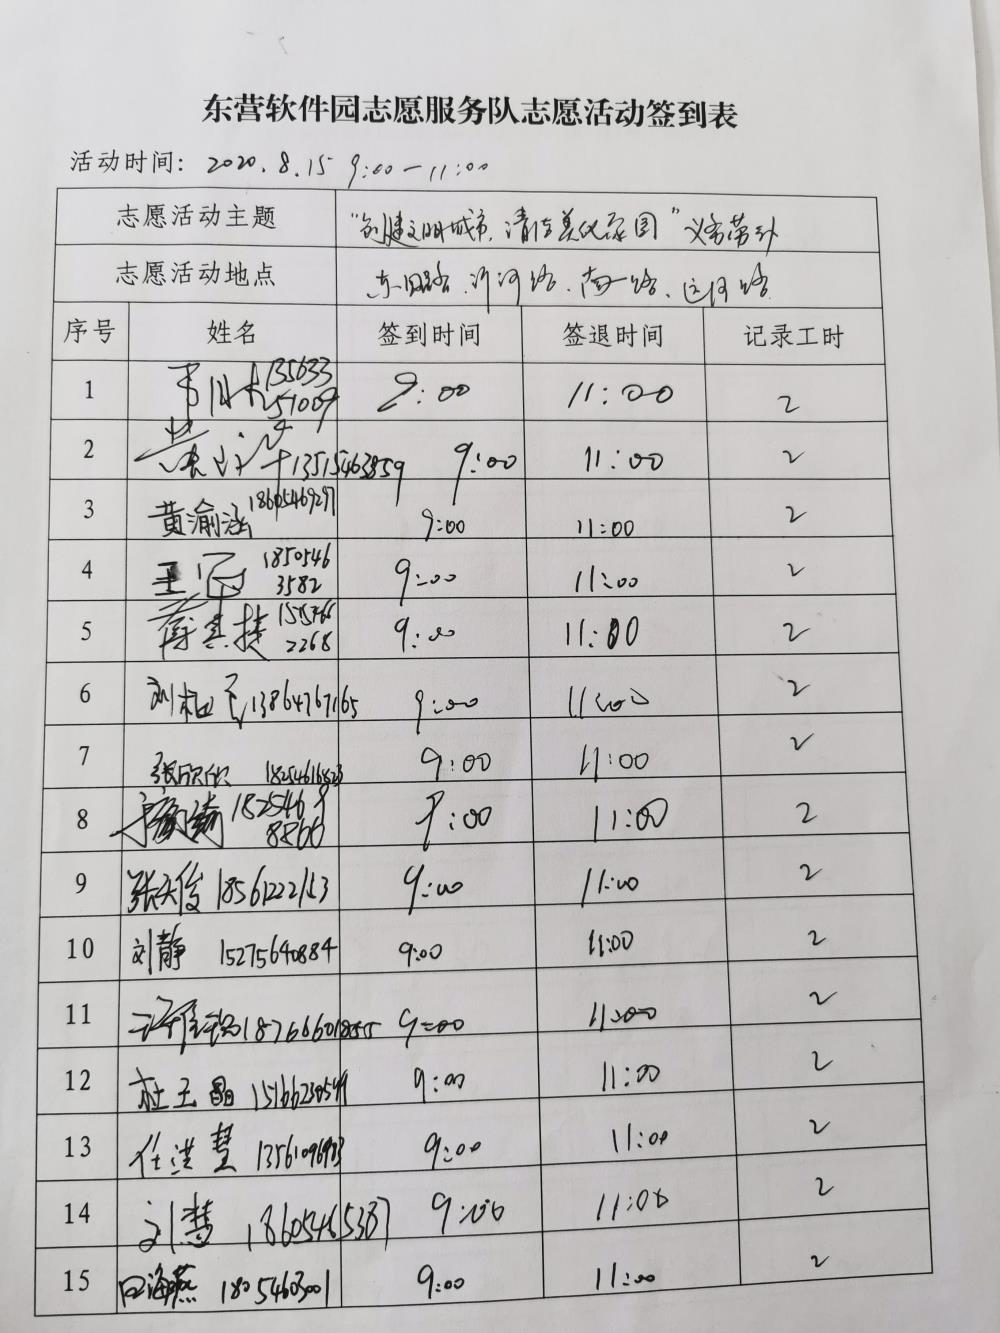 东营软件园志愿服务队志愿活动签到表
活动时间: 2020.8.15 9:00—11:00
志愿活动主题 "创建文明城市,清洁美化家园"义务劳动
志愿活动地点 东路、沂河路、南一路、运河路
序号 姓名 签到时间 签退时间 记录工时
1 13563351009 9:00 11:00 2
2 13515463859 9:00 11:00 2
3 黄渝涵 18605469297 9:00 11:00 2
4 王 18505463582 9:00 11:00 2
5 2268 9:00 11:00 2
6 刘 13864767165 9:00 11:00 2
7 张欣欣 9:00 11:00 2
8 8866 9:00 11:00 2
9 张天俊 9:00 11:00 2
10 刘静 15275640884 9:00 11:00 2
11 9:00 11:00 2
12 杜玉晶 9:00 11:00 2
13 任洪慧 9:00 11:00 2
14 刘慧 18605465387 9:00 11:00 2
15 海燕 18054603001 9:00 11:00 2